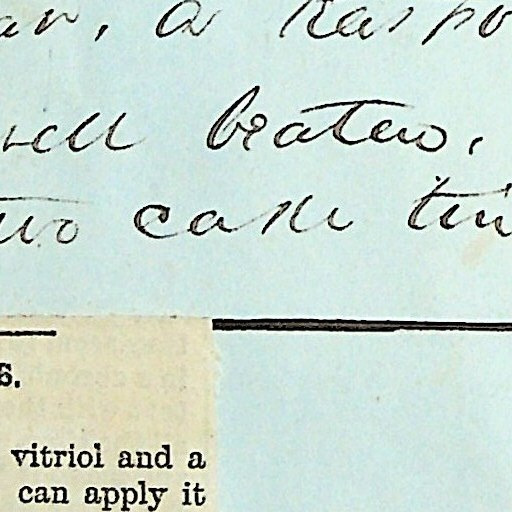 a
well beaten,
two cake tin
s.
vitriol and a
can apply it